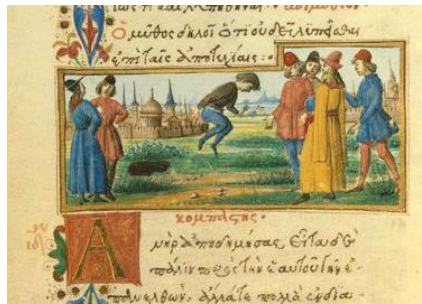 Ὁ μῦθος δηλοῖ ὅτι οὐ δεῖ λυπεῖσθαι
ἐπὶ ταῖς ἀποτυχίαις:
κομπαστής.
Ἀνὴρ ἀποδημήσας, εἶτα δὲ
πάλιν πρὸς τὴν ἑαυτοῦ γῆν ἐ
πανελθὼν, ἄλλα τε πολλὰ ἐν δια